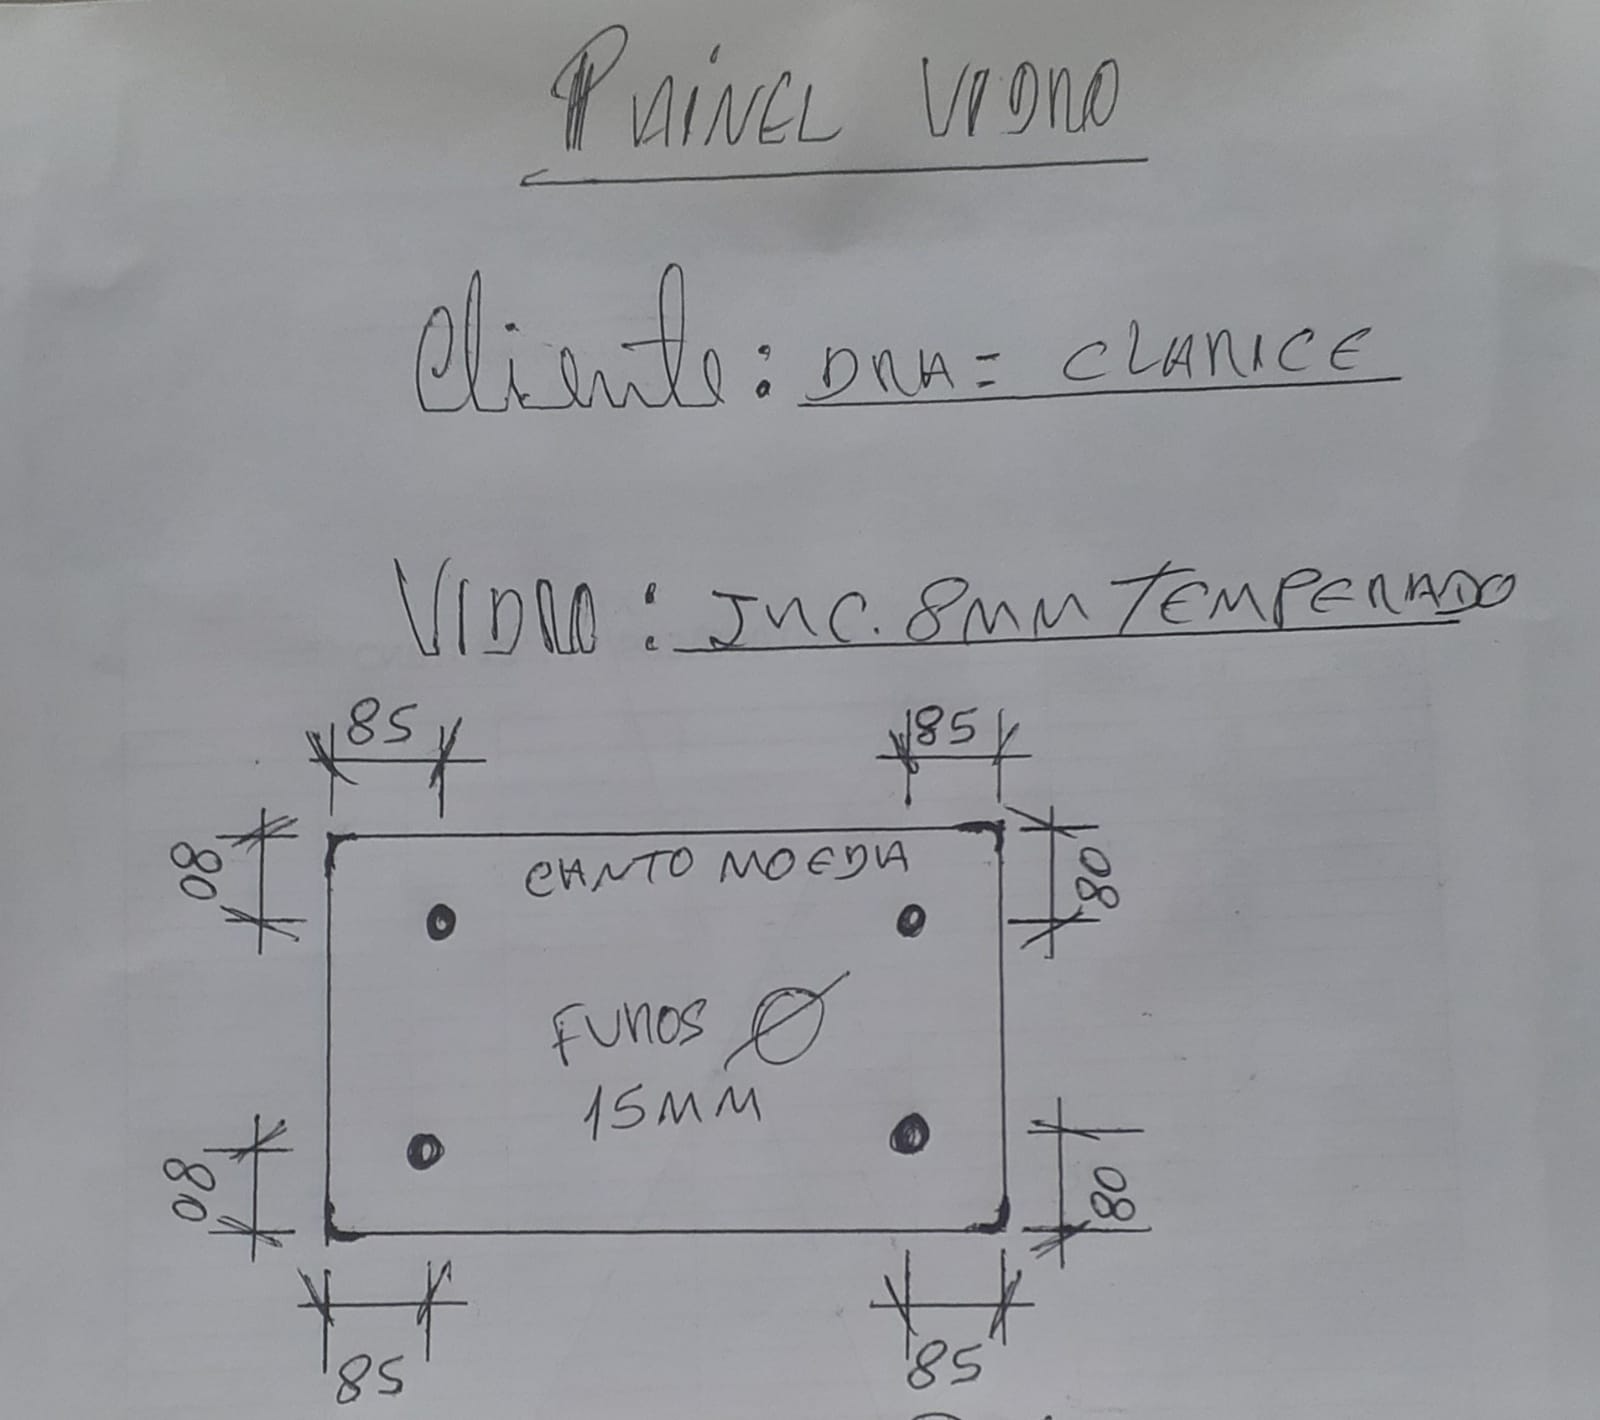 PAINEL VIDRO
Cliente: DRA= CLARICE
VIDRO: INC. 8MM TEMPERADO
85 85
80 80
CANTO MOEDA
FUROS Ø
15MM
80 80
85 85